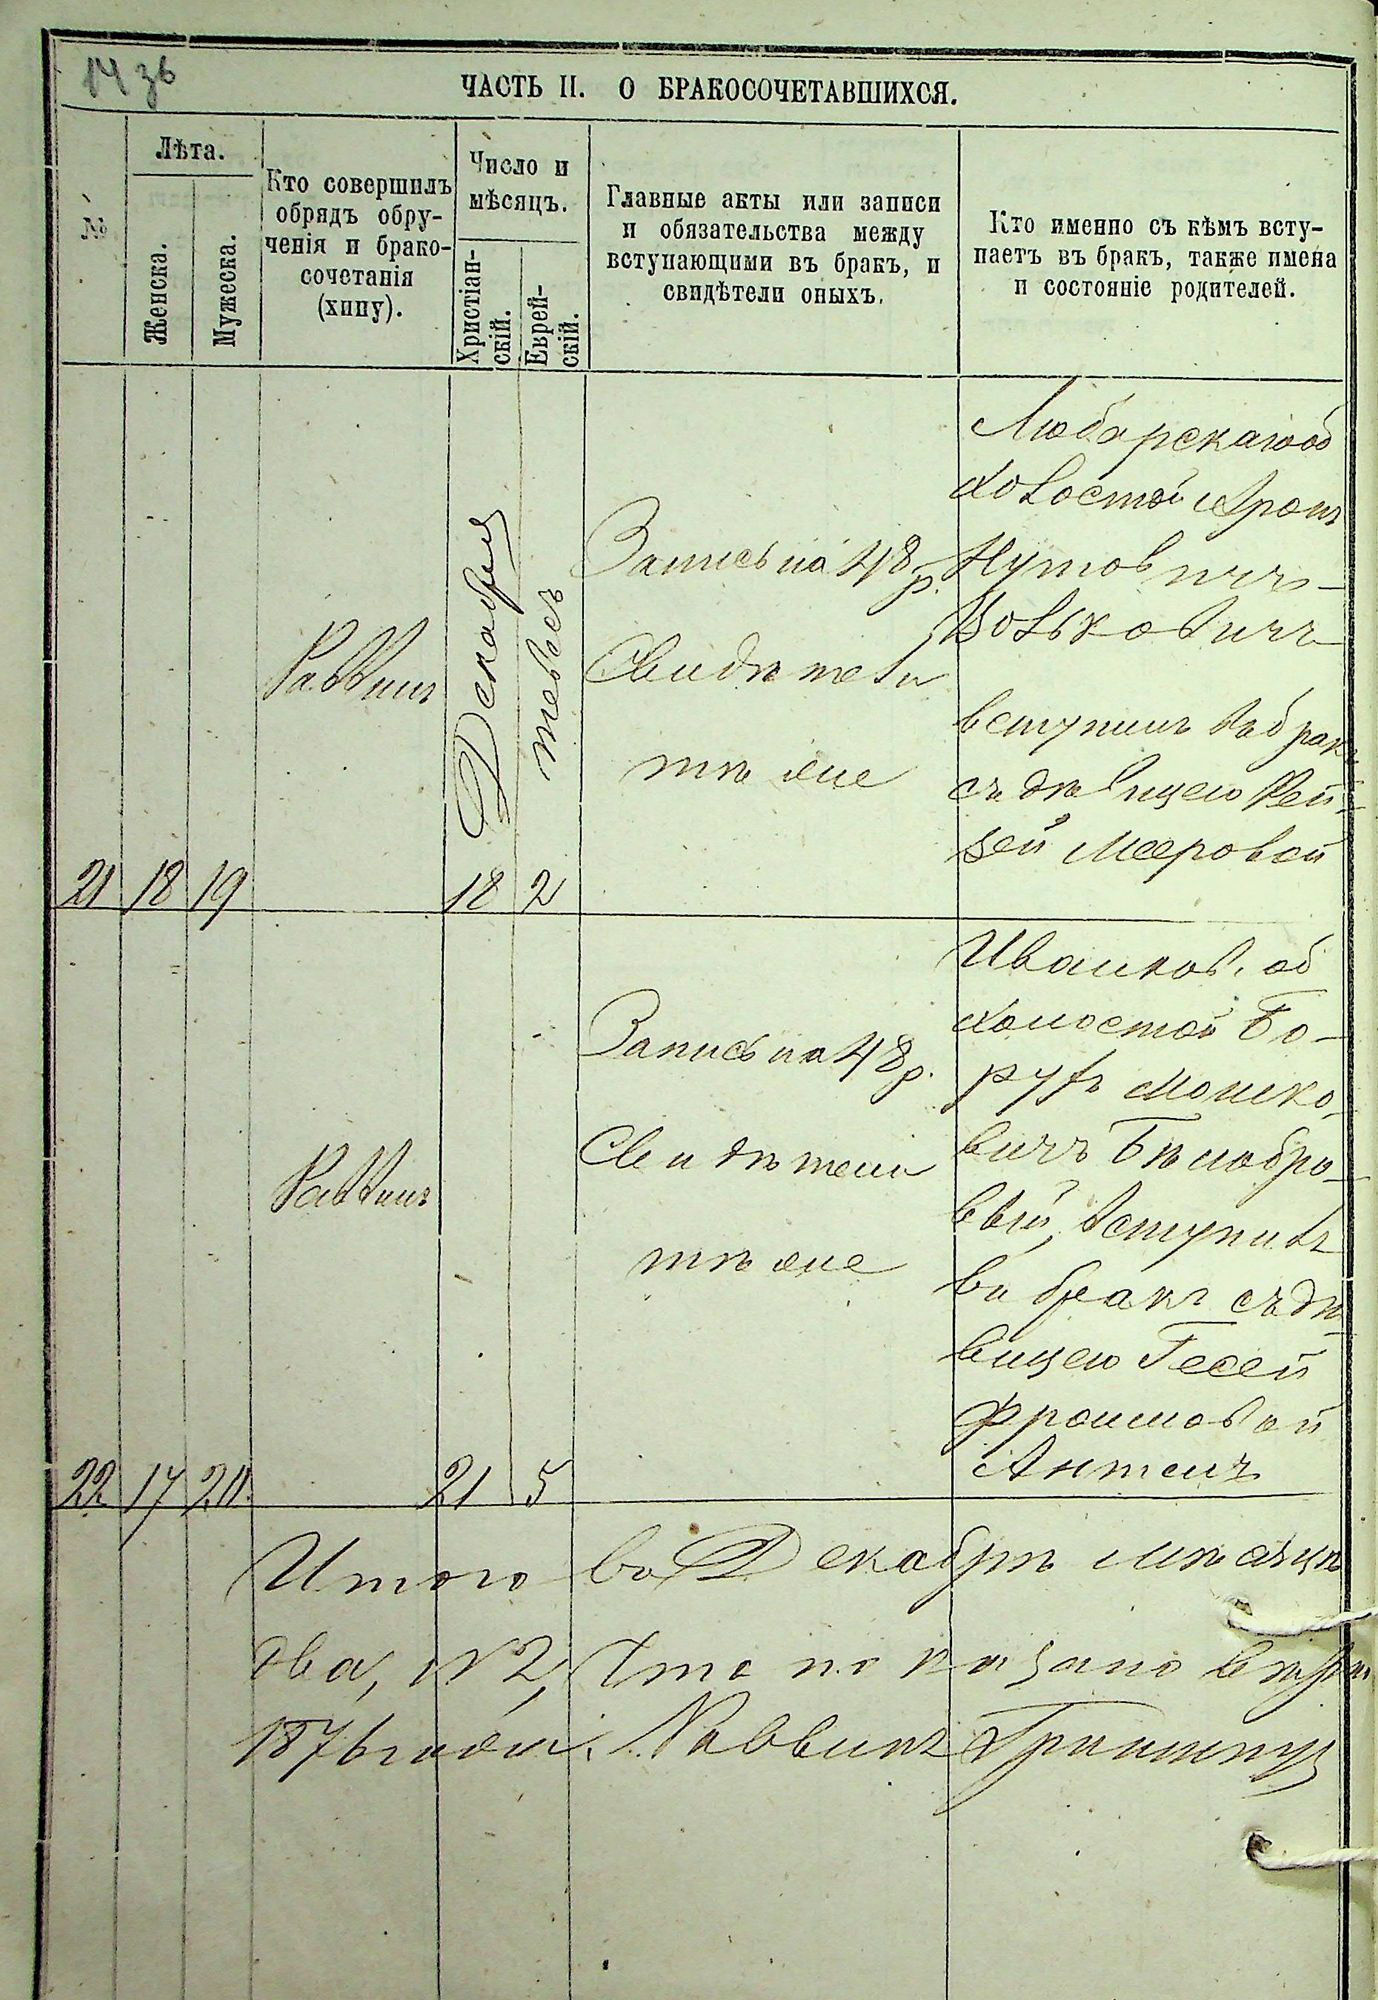 ЧАСТЬ II. О БРАКОСОЧЕТАВШИХСЯ.
№
Лѣта.
Женска.
Мужеска.
Кто совершилъ
обрядъ обру-
ченія и брако-
сочетанія
(хипу).
Число и
мѣсяцъ.
Христіан-
скій.
Еврей-
скій.
Главные акты или записи
и обязательства между
вступающими въ бракъ, и
свидѣтели оныхъ.
Кто именно съ кѣмъ всту-
паетъ въ бракъ, также имена
и состояніе родителей.
21
18
19
Раввинъ
Декабря
18
тевесъ
2
Запись на 48 р.
Свидѣтели
тѣ же
Любарскаго об
холостой Аронъ
Нутовичъ
Волькович
вступилъ въ бракъ
съ дѣвицею Рей-
зей Мееровой
22
17
20
Раввинъ
21
5
Запись на 48 р.
Свидѣтели
тѣ же
Иванков. об
холостой Бо-
рухъ Мошко-
вичъ Бѣлобро-
вый, вступилъ
въ бракъ съ дѣ-
вицею Гесей
Фроимовой
Антель
Итого въ Декабрѣ мѣсяцѣ
два, №2, что показано вѣрно
1876 года. Раввинъ